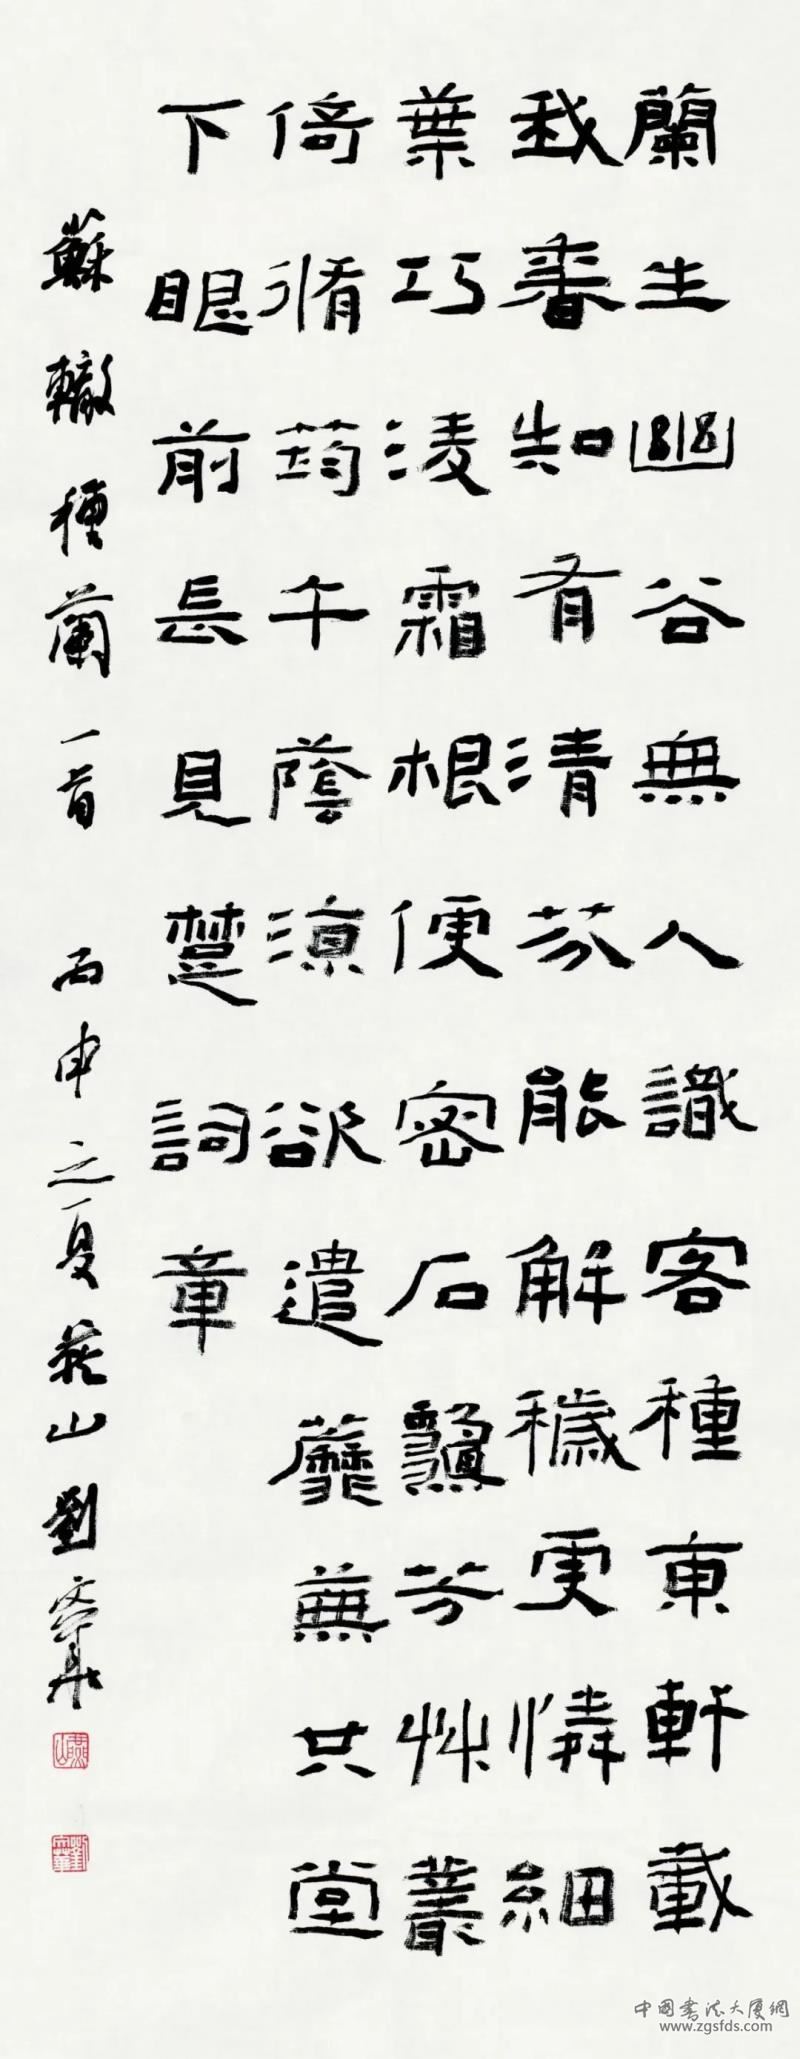 蘭生幽谷無人識客種東軒載
我香知有清芬能解穢更憐細
葉巧淩霜根便密石龝芳艸叢
倚脩筠午蔭涼欲遣蘼蕪共堂
下眼前長見楚詞章
蘇轍種蘭一首 丙申之夏 山劉文華
中國書法大廈網
www.zgsfds.com